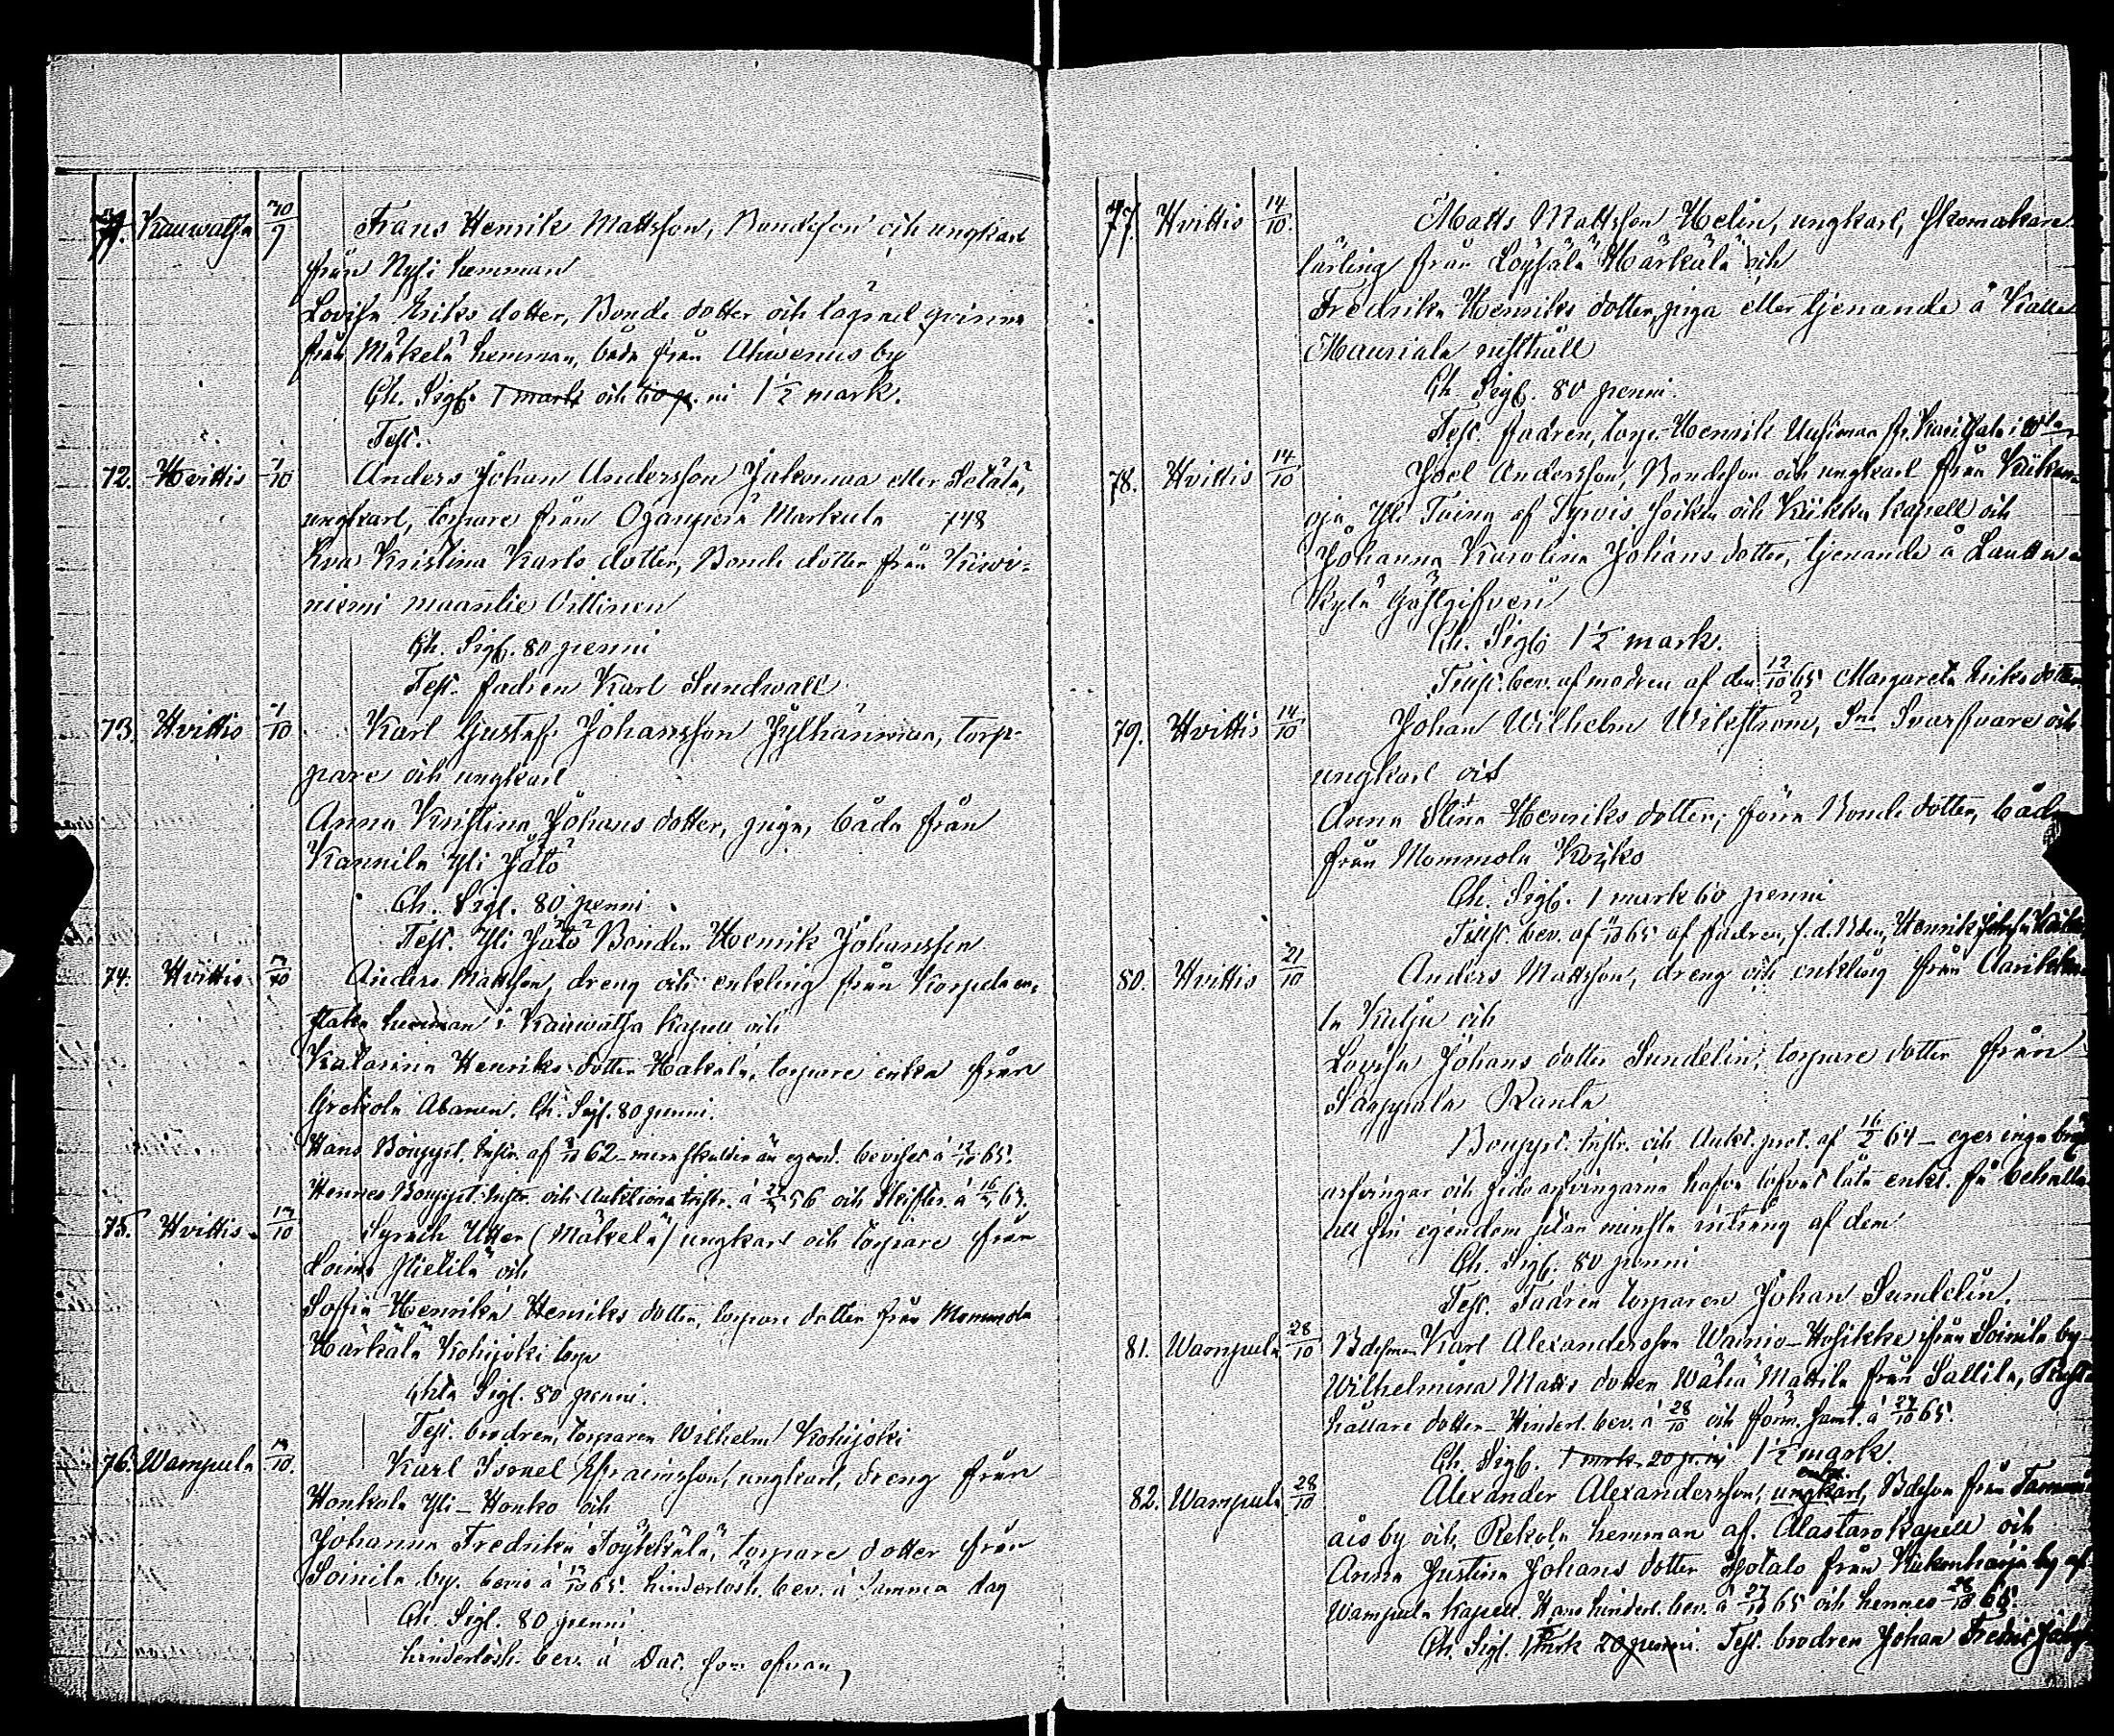 71. Kauwatsa 30/9 Frans Henrik Mattsson, Bondeson och ungkarl
från Nysi hemman
Lovisa Eriks dotter, Bonde dotter och qvinna
från Mäkelä hemman, båda från Ahwenus by
Ch. Sigf. 1 mark och 60 p. ni 1 1/2 mark.
Test.
72. Hvittis 7/10 Anders Johan Andersson Jakomaa eller Setälä,
ungkarl, torpare från Oganperä Markula 748
Eva Kristina Karls dotter, Bonde dotter från Kiwi-
niemi maantie Orttinen
Ch. Sigf. 80 penni
Test. fadren Karl Sundwall
73. Hvittis 7/10 Karl Gustaf Johansson Jylhänmaa, torp-
pare och ungkarl
Anna Kristina Johans dotter, piga, båda från
Karmila Yli Jato
Ch. Sigf. 80 penni
Test. Yli Jato Bonden Henrik Johansson
74. Hvittis 7/10 Anders Mattson, dreng och enkling från Korpela en-
staka hemman i Kauwatsa kapell och
Katarina Henriks dotter Hakala, torpare enka från
Grekola Abanen. Ch. Sigf. 80 penni.
Hans Bouppt. Instr. af 8/10 62 mera skulder än egend. beviset à 12/10 65.
Hennes Bouppt. Instr. och Auktions instr. à 56 och Skifter. à 63.
75. Hvittis 13/10 Syrach Utter (Mäkelä) ungkarl och torpare från
Loima Hietilä och
Soffia Henrika Henriks dotter, torpare dotter från Mommola
Härkälä Kohijoki torp
Chta Sigf. 80 penni.
Test. brodren, torparen Wilhelm Kohijoki
76. Wampula 13/10. Karl Israel Efraimsson, ungkarl, dreng från
Honkola Yli-Honko och
Johanna Fredrika Töykkälä, torpare dotter från
Soinila by. bevis à 13/10 65. hinderlösh. bev. à samma dag
Ch. Sigf. 80 penni
hinderlösh. bev. à Dat. som ofvan,
77. Hvittis 14/10. Matts Mattsson Helin, ungkarl, skomakare
lärling från Löysälä Härkälä och
Fredrika Henriks dotter, piga eller tjenande å
Mauriala rusthåll
Ch. Sigf. 80 penni.
Test. fadren, torp. Henrik Uusimaa fr.
78. Hvittis 14/10 Joel Andersson, Bondeson och ungkarl från
oja Yli Tuina af Tyrvis socken och Kiikka kapell och
Johanna Karolina Johans dotter, tjenande å Lauttu
kylä Gästgifveri
Ch. Sigf. 1 1/2 mark.
Test. bev. af modren af den 12/10 65 Margareta Eriks dotter
79. Hvittis 14/10 Johan Wilhelm Wikström, Sni Svarfvare och
ungkarl och
Anna Stina Henriks dotter, förra Bonde dotter, båda
från Mommola Kouko
Ch. Sigf. 1 mark 60 penni
Test. bev. af 11/10 65 af fadren, f. d. Bden, Henrik
80. Hvittis 21/10 Anders Mattsson, dreng och enkling från
la Kulju och
Lovisa Johans dotter Sundelin, torpare dotter från
Sampula Ranta
Bouppt. Instr. och Aukt. prot. af 16/2 64 - eger inga bröst
arfvingar och sido arfvingarna hafva lofvat låta enkl. få behålla
all sin egendom utan minsta intrång af dem
Ch. Sigf. 80 penni
Test. Fadren torparen Johan Sundelin.
81. Wampula 28/10 Bdesonen Karl Alexandersson Wainio-Hosikka ifrån Soinila by
Wilhelmina Matts dotter Wähä Mattila från Sallila, Rust-
hållare dotter - Hinderl. bev. à 28/10 och form. samt. à 27/10 65.
Ch. Sigf. 1 mrk. 20 p. ni 1 1/2 mark.
82. Wampula 28/10 Alexander Alexandersson, ungkarl, Bdeson från
ais by och Rekola hemman af Alastaro kapell och
Anna Justina Johans dotter Isotalo från Kukonharja by af
Wampula kapell. Hans hinderl. bev. à 27/10 65 och hennes 28/10 65.
Ch. Sigf. 1 mrk 20 penni. Test. brodren Johan